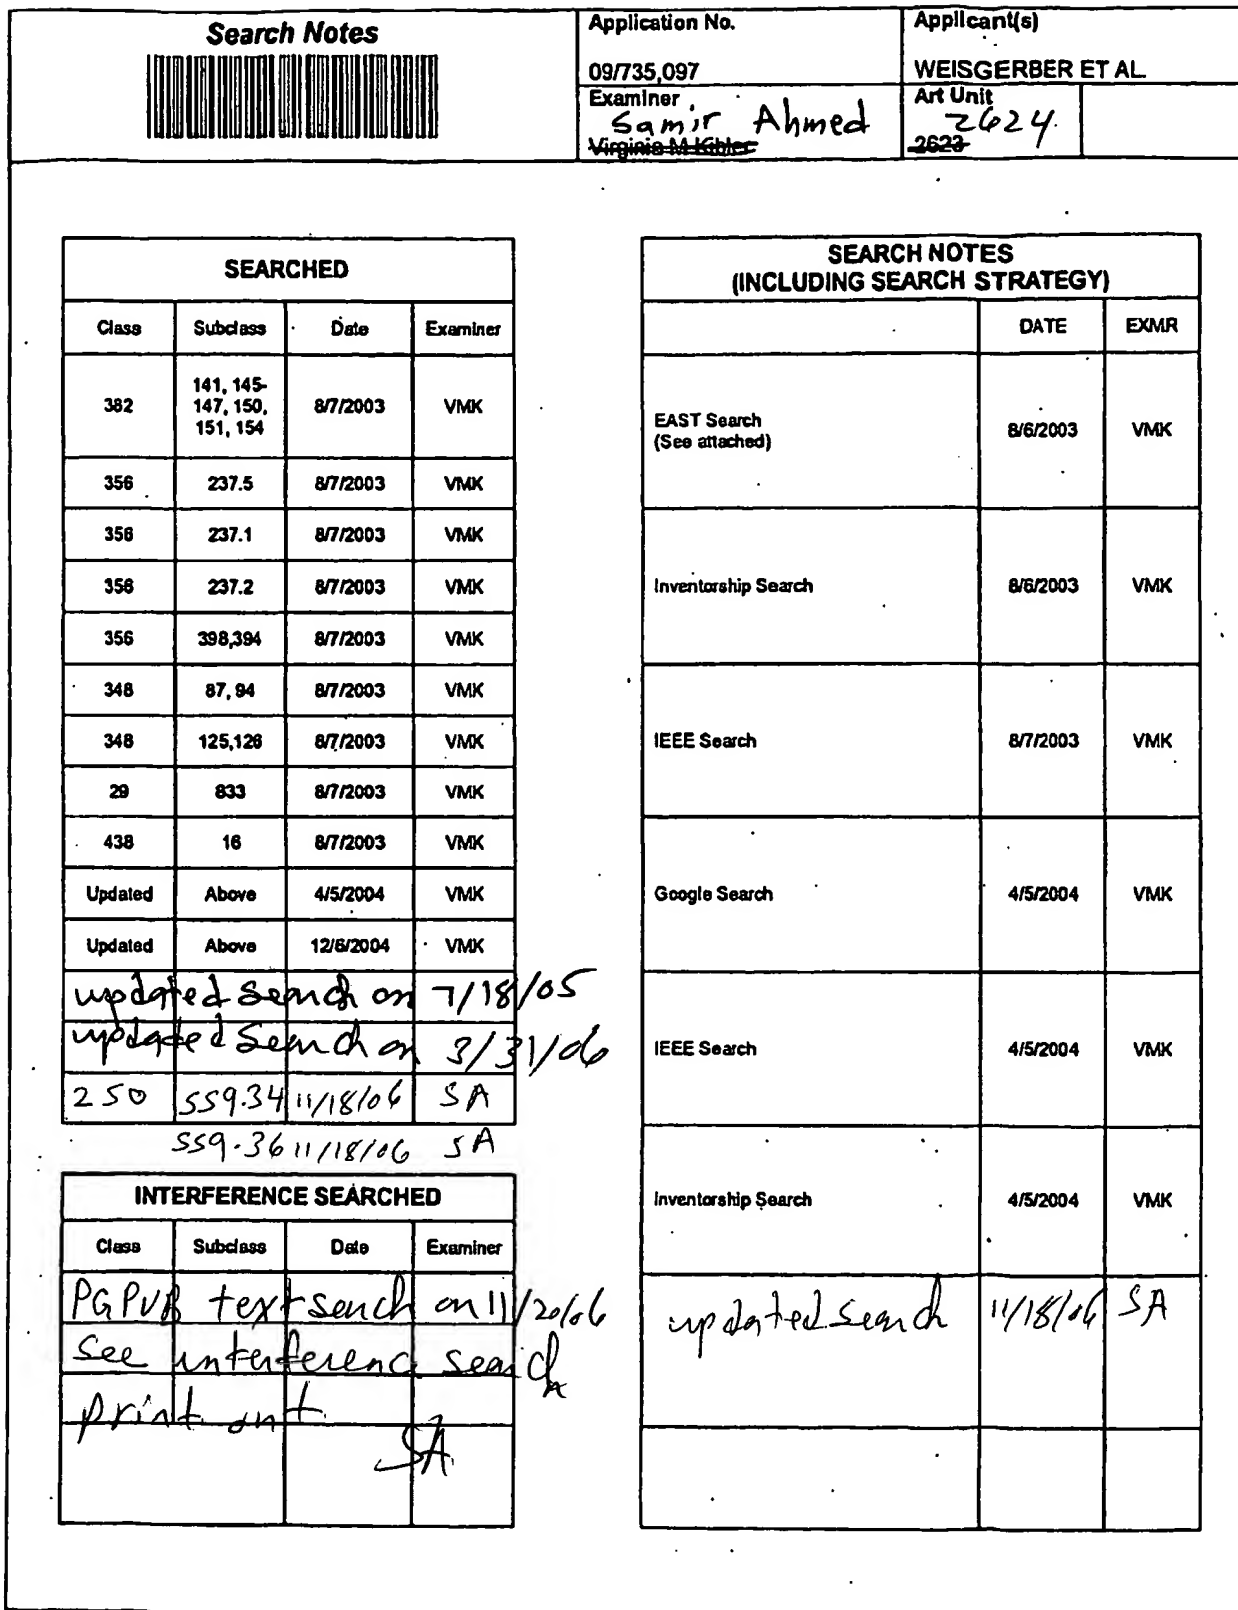 Search Notes
Application No.
09/735,097
Applicant(s)
WEISGERBER ET AL.
Examiner
Samir Ahmed
Virginia M Kibler
Art Unit
2624
2623
SEARCHED
Class Subclass Date Examiner
382 141, 145-
147, 150,
151, 154 8/7/2003 VMK
356 237.5 8/7/2003 VMK
356 237.1 8/7/2003 VMK
356 237.2 8/7/2003 VMK
356 398,394 8/7/2003 VMK
348 87, 94 8/7/2003 VMK
348 125,126 8/7/2003 VMK
29 833 8/7/2003 VMK
438 16 8/7/2003 VMK
Updated Above 4/5/2004 VMK
Updated Above 12/6/2004 VMK
updated search on 7/18/05
updated search on 3/31/06
250 559.34 11/18/06 SA
559.36 11/18/06 SA
INTERFERENCE SEARCHED
Class Subclass Date Examiner
PGPUB text search on 11/20/06
See interference search
print out
SA
SEARCH NOTES
(INCLUDING SEARCH STRATEGY)
DATE EXMR
EAST Search
(See attached) 8/6/2003 VMK
Inventorship Search 8/6/2003 VMK
IEEE Search 8/7/2003 VMK
Google Search 4/5/2004 VMK
IEEE Search 4/5/2004 VMK
Inventorship Search 4/5/2004 VMK
updated search 11/18/06 SA